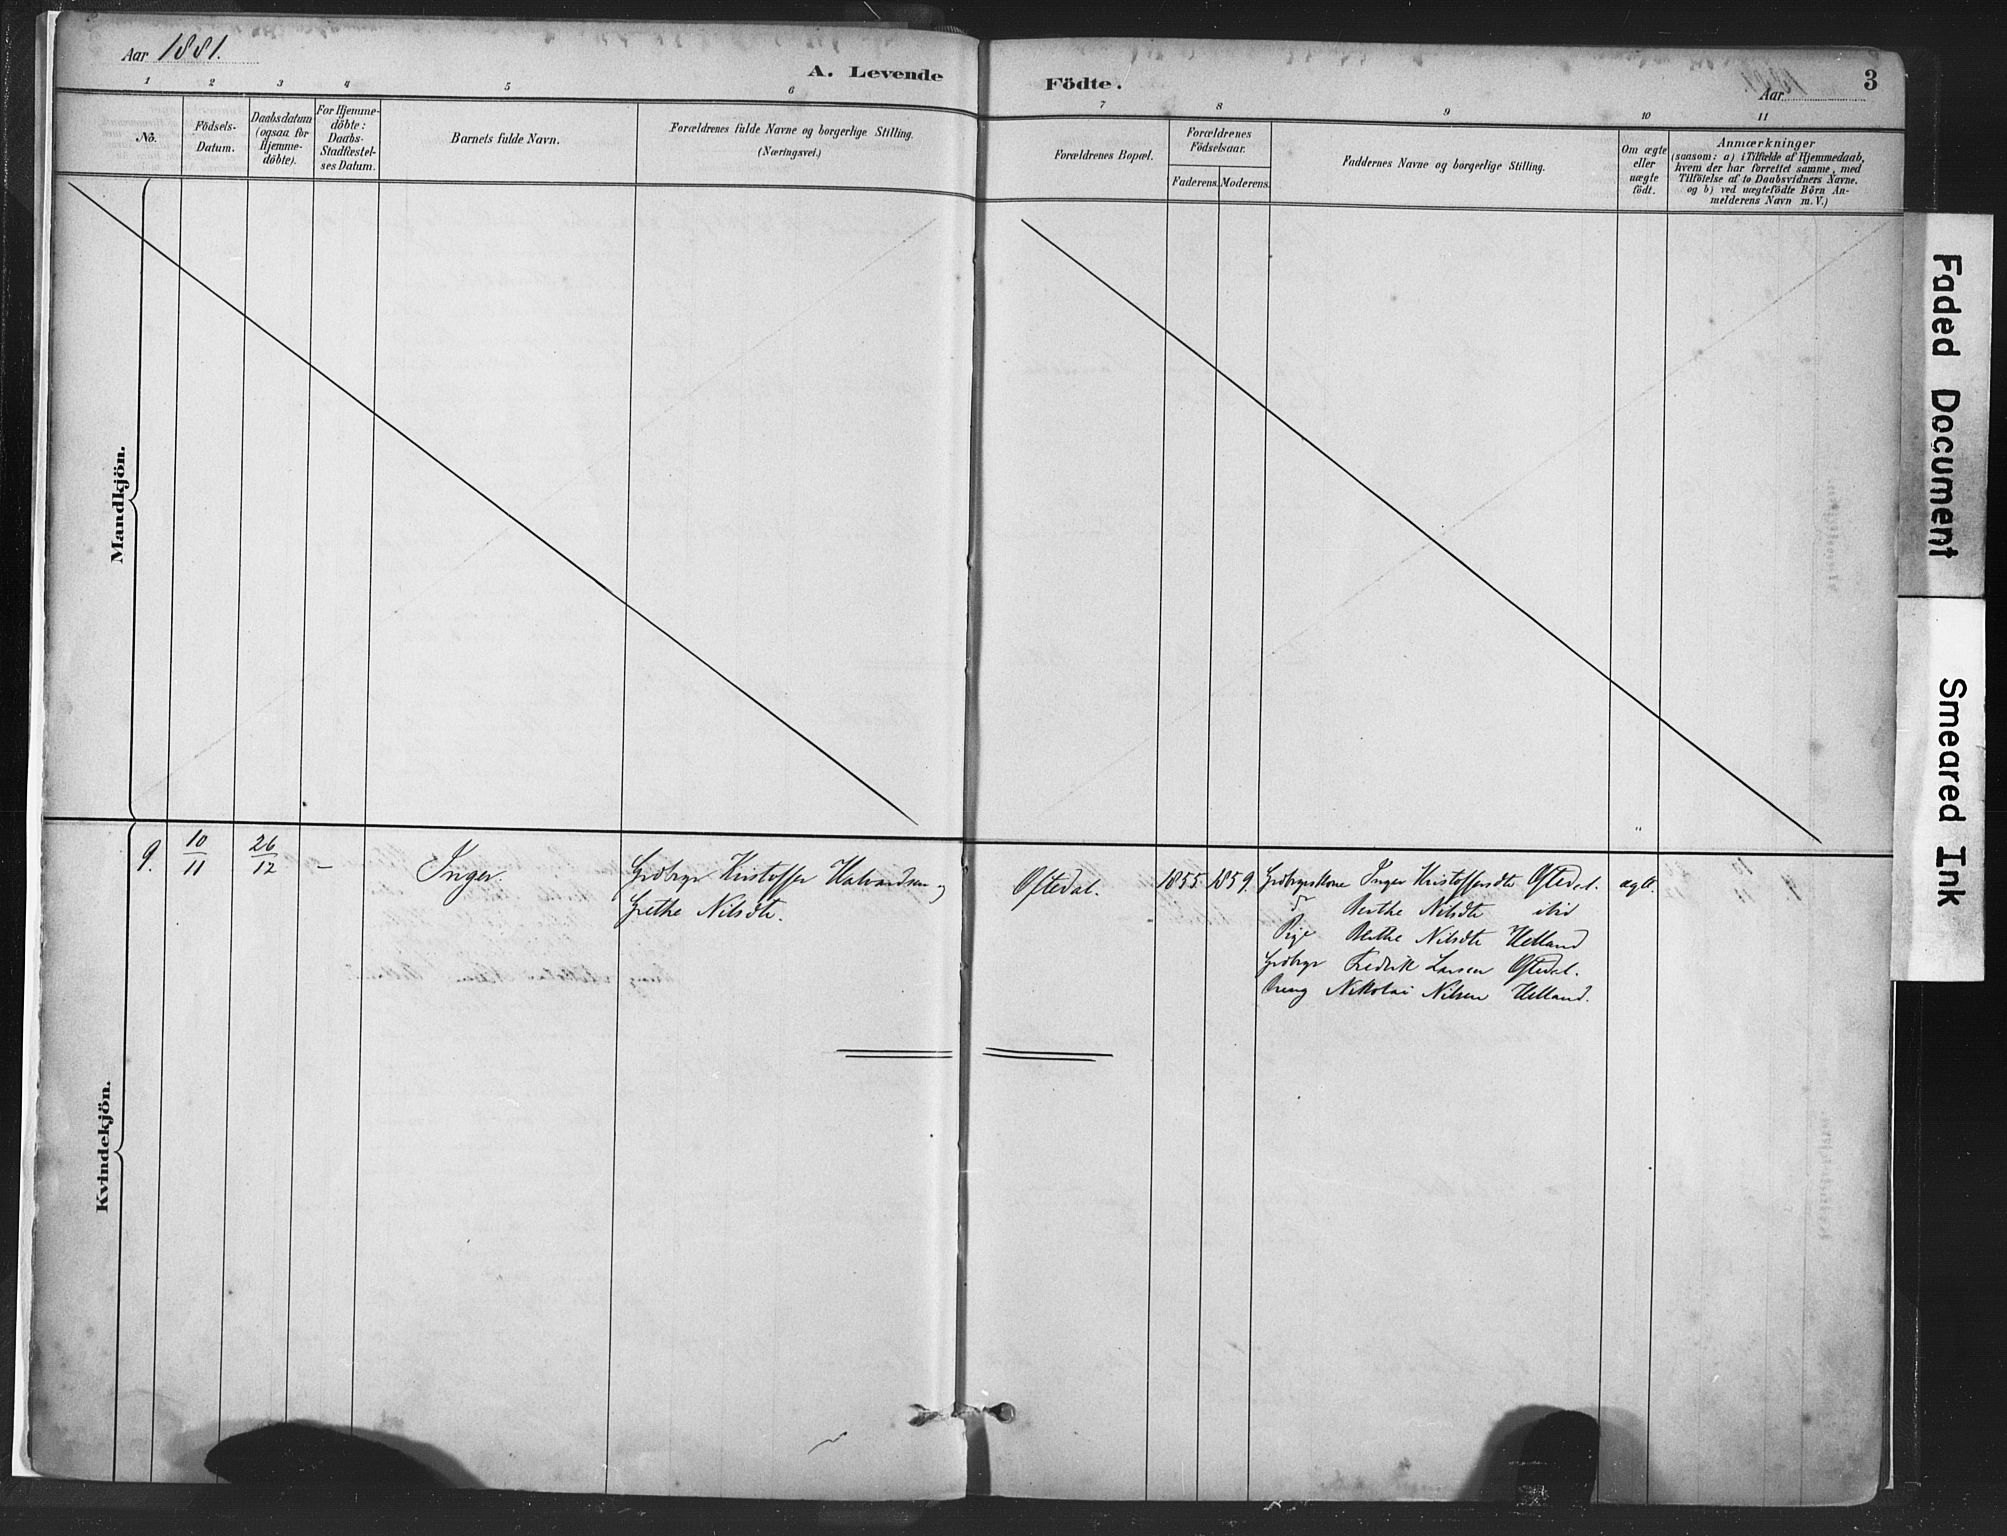 Aar 1881.
A. Levende Födte.
Aar
3
1 2 3 4 5 6 7 8 9 10 11
No.
Födsels-
Datum.
Daabsdatum
(ogsaa for
Hjemme-
döbte).
For Hjemme-
döbte:
Daabs-
Stadfæstel-
ses Datum.
Barnets fulde Navn.
Forældrenes fulde Navne og borgerlige Stilling.
(Næringsvei.)
Forældrenes Bopæl.
Forældrenes
Födselsaar.
Faderens. Moderens.
Faddernes Navne og borgerlige Stilling.
Om ægte
eller
uægte
födt.
Anmærkninger
(saasom: a) i Tilfælde af Hjemmedaab,
hvem der har forrettet samme, med
Tilföielse af to Daabsvidners Navne.
og b) ved uægtefödte Börn An-
melderens Navn m. V.)
Mandkjön.
Kvindekjön.
9.
10/11
26/12
–
Inger.
Grdbrgr Kristoffer Halvardsen og
Grethe Nilsdtr.
Oftedal.
1855
1859.
Grdbrgrskone Inger Kristoffersdtr Oftedal.
Berthe Nilsdtr ibid
Pige Berthe Nilsdtr Helland
Grdbrgr Fredrik Larsen Oftedal.
Ungk Nikolai Nilsen Helland.
ægte.
Faded Document
Smeared Ink